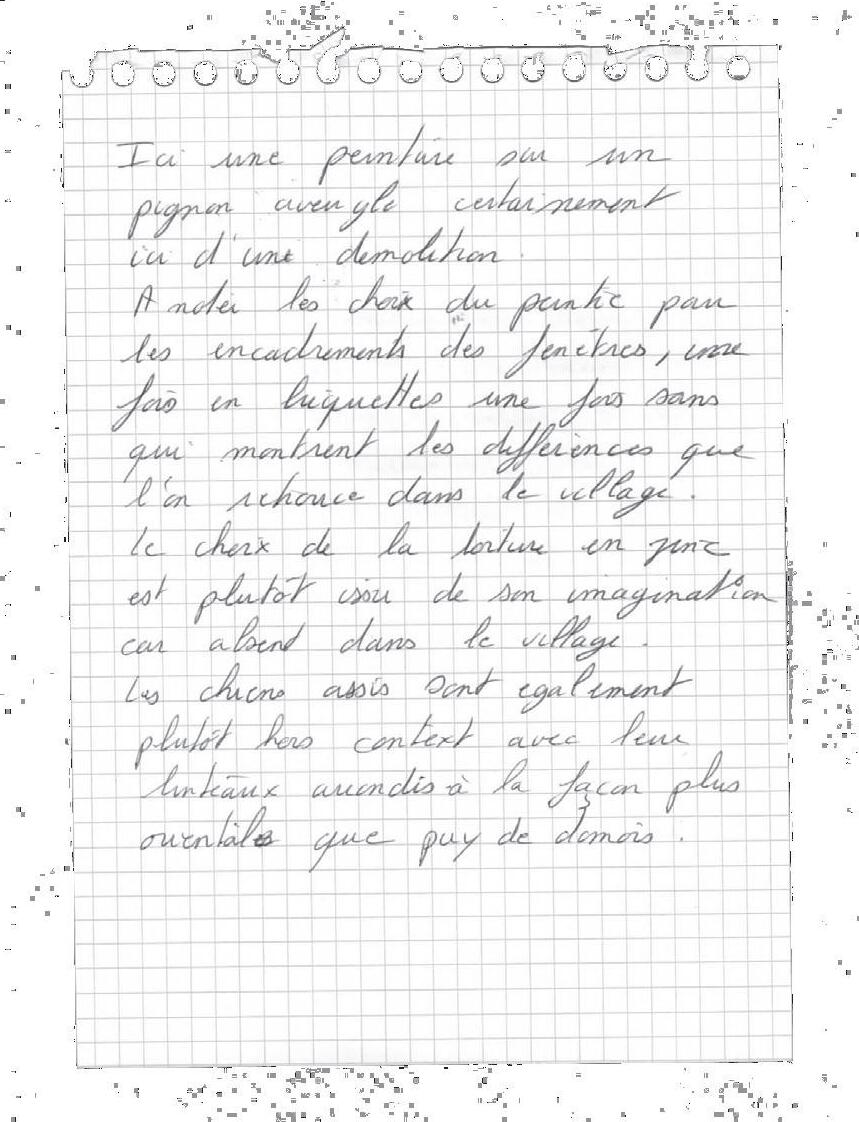 Ici une peinture sur un
pignon aveugle certainement
ici d'une demolition.
A noter les choix du peintre pour
les encadrements des fenêtres, une
fois en briquettes une fois sans
qui montrent les differences que
l'on retrouve dans le village.
Le choix de la toiture en zinc
est plutôt issu de son imagination
car absend dans le village.
Les chiens assis sont egalement
plutôt hors context avec leur
linteaux arrondis à la façon plus
orientale que puy de domois.